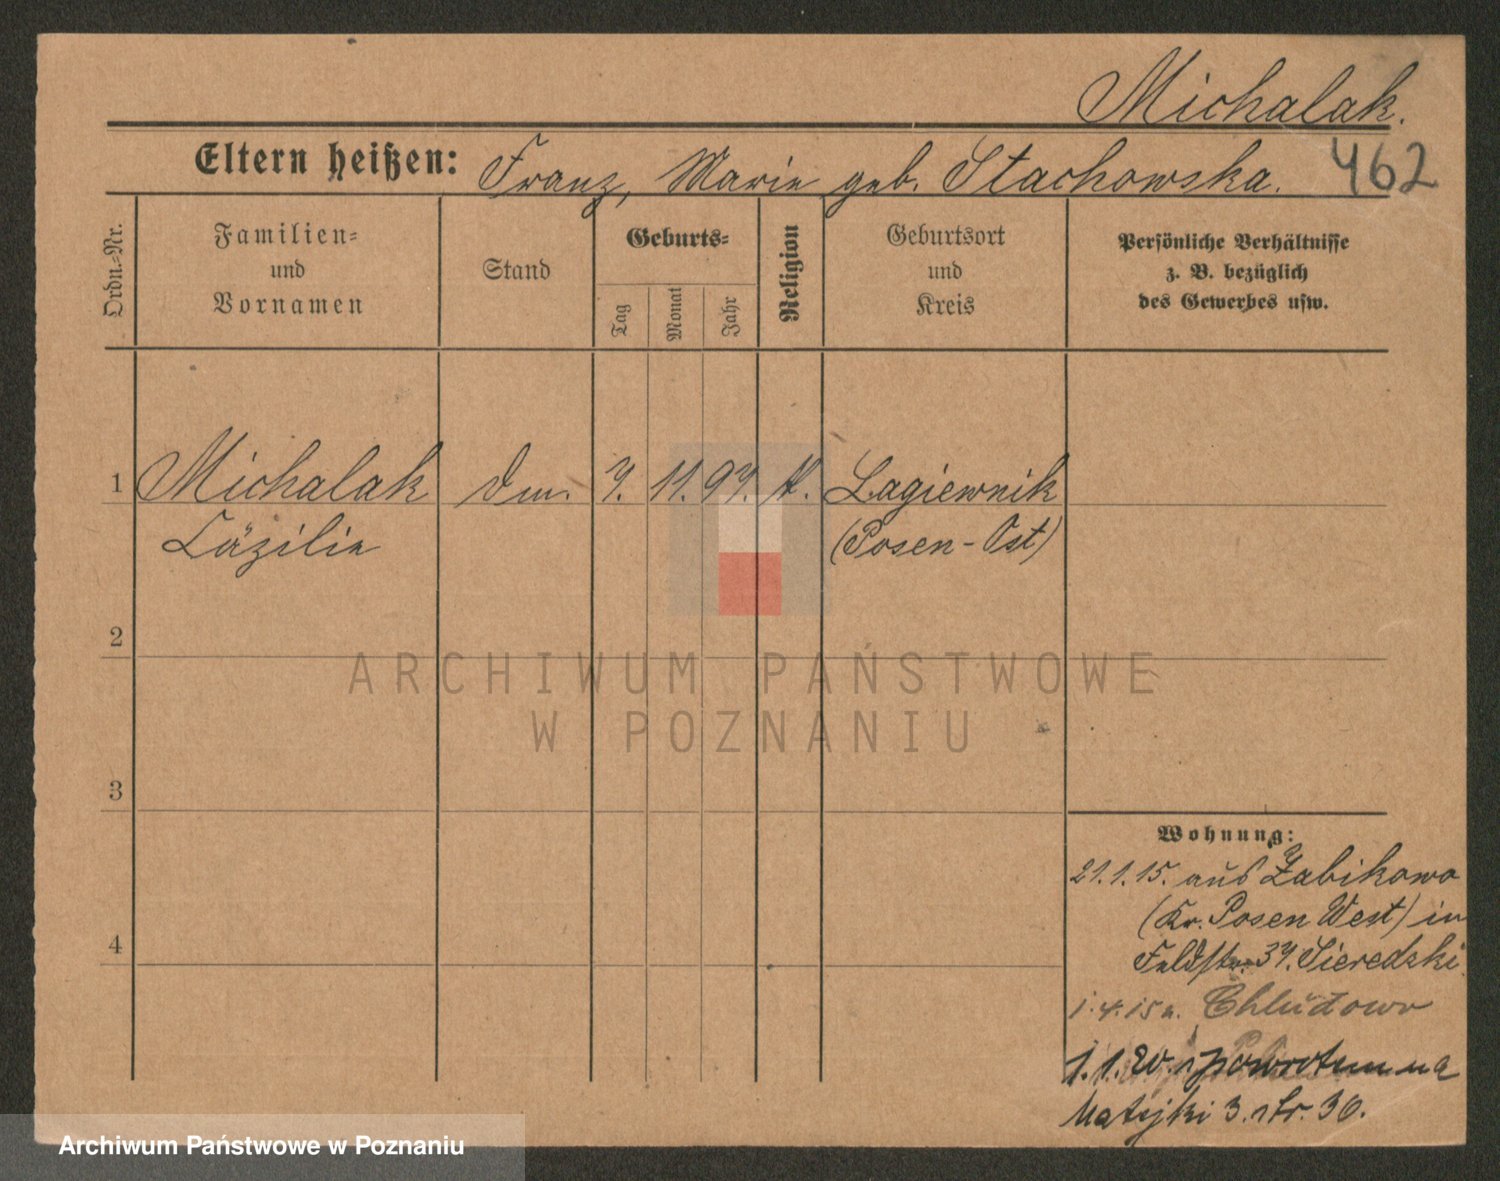 Michalak.
462
Eltern heißen: Franz, Marie geb. Stachowska.
Ordn.-Nr.
Familien=
und
Vornamen
Stand
Geburts=
Tag
Monat
Jahr
Religion
Geburtsort
und
Kreis
Persönliche Verhältnisse
z. B. bezüglich
des Gewerbes usw.
1 Michalak 7. 11. 97. k. Lagiewnik
Cäzilie (Posen-Ost)
2
3
4
Wohnung:
21.1.15. aus Zabikowo
(Kr. Posen West) in
Feldstr. 37. Sieredzki
1.4.15 n. Chludowo
1.1.20. spowrotem na
Matejki 3. str. 30.
ARCHIWUM PAŃSTWOWE
W POZNANIU
Archiwum Państwowe w Poznaniu